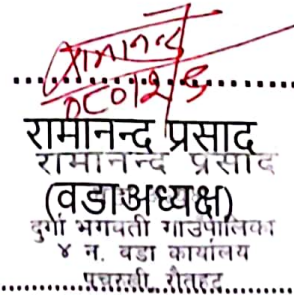 रामानन्द
रामानन्द प्रसाद
रामानन्द प्रसाद
(वडाअध्यक्ष)
दुर्गा भगवती गाउँपालिका
४ न. वडा कार्यालय
पचरुखी, रौतहट